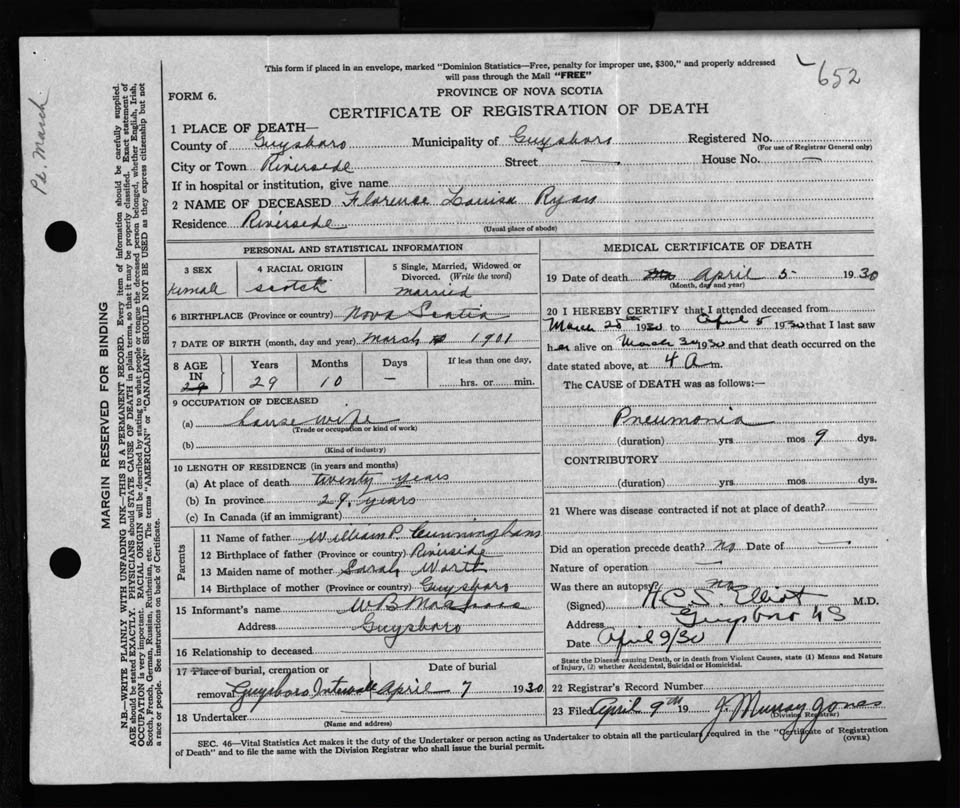 This form if placed in an envelope, marked "Dominion Statistics—Free, penalty for improper use, $300," and properly addressed
will pass through the Mail "FREE"
652
FORM 6.
PROVINCE OF NOVA SCOTIA
CERTIFICATE OF REGISTRATION OF DEATH
1 PLACE OF DEATH—
County of Guysboro Municipality of Guysboro Registered No.
(For use of Registrar General only)
City or Town Riverside Street — House No. —
If in hospital or institution, give name
2 NAME OF DECEASED Florence Louisa Ryan
Residence Riverside
(Usual place of abode)
PERSONAL AND STATISTICAL INFORMATION
3 SEX 4 RACIAL ORIGIN 5 Single, Married, Widowed or
Divorced. (Write the word)
Female Scotch married
6 BIRTHPLACE (Province or country) Nova Scotia
7 DATE OF BIRTH (month, day and year) March 1901
8 AGE IN Years Months Days If less than one day,
29 29 10 — hrs. or min.
9 OCCUPATION OF DECEASED
(a) house wife
(Trade or occupation or kind of work)
(b)
(Kind of industry)
10 LENGTH OF RESIDENCE (in years and months)
(a) At place of death twenty years
(b) In province 29 years
(c) In Canada (if an immigrant)
Parents
11 Name of father William P Cunningham
12 Birthplace of father (Province or country) Riverside
13 Maiden name of mother Sarah Worth
14 Birthplace of mother (Province or country) Guysboro
15 Informant's name W B
Address Guysboro
16 Relationship to deceased
17 Place of burial, cremation or Date of burial
removal Guysboro Intervale April 7 1930
18 Undertaker
(Name and address)
MEDICAL CERTIFICATE OF DEATH
19 Date of death April 5 1930
(Month, day and year)
20 I HEREBY CERTIFY that I attended deceased from
March 25th 1930 to April 5 1930 that I last saw
her alive on March 30 1930 and that death occurred on the
date stated above, at 4 A m.
The CAUSE OF DEATH was as follows:—
Pneumonia
(duration) yrs mos 9 dys.
CONTRIBUTORY
(duration) yrs. mos. dys.
21 Where was disease contracted if not at place of death?
Did an operation precede death? no Date of —
Nature of operation —
Was there an autopsy? no
(Signed) Elliot M.D.
Address Guysboro NS
Date April 9/30
State the Disease causing Death, or in death from Violent Causes, state (1) Means and Nature
of Injury, (2) whether Accidental, Suicidal or Homicidal.
22 Registrar's Record Number
23 Filed April 9th 19 J. Murray Jones
(Division Registrar)
SEC. 46—Vital Statistics Act makes it the duty of the Undertaker or person acting as Undertaker to obtain all the particulars required in the "Certificate of Registration
of Death" and to file the same with the Division Registrar who shall issue the burial permit. (OVER)
MARGIN RESERVED FOR BINDING
N.B.—WRITE PLAINLY WITH UNFADING INK—THIS IS A PERMANENT RECORD. Every item of information should be carefully supplied.
AGE should be stated EXACTLY. PHYSICIANS should STATE CAUSE OF DEATH in plain terms, so that it may be properly classified. Exact statement of
OCCUPATION is very important. RACIAL ORIGIN will be described by stating to what people or tongue the deceased person belonged, whether English, Irish,
Scotch, French, German, Russian, Ruthenian, etc. The terms "AMERICAN" or "CANADIAN" SHOULD NOT BE USED as they express citizenship but not
a race or people. See instructions on back of Certificate.
March